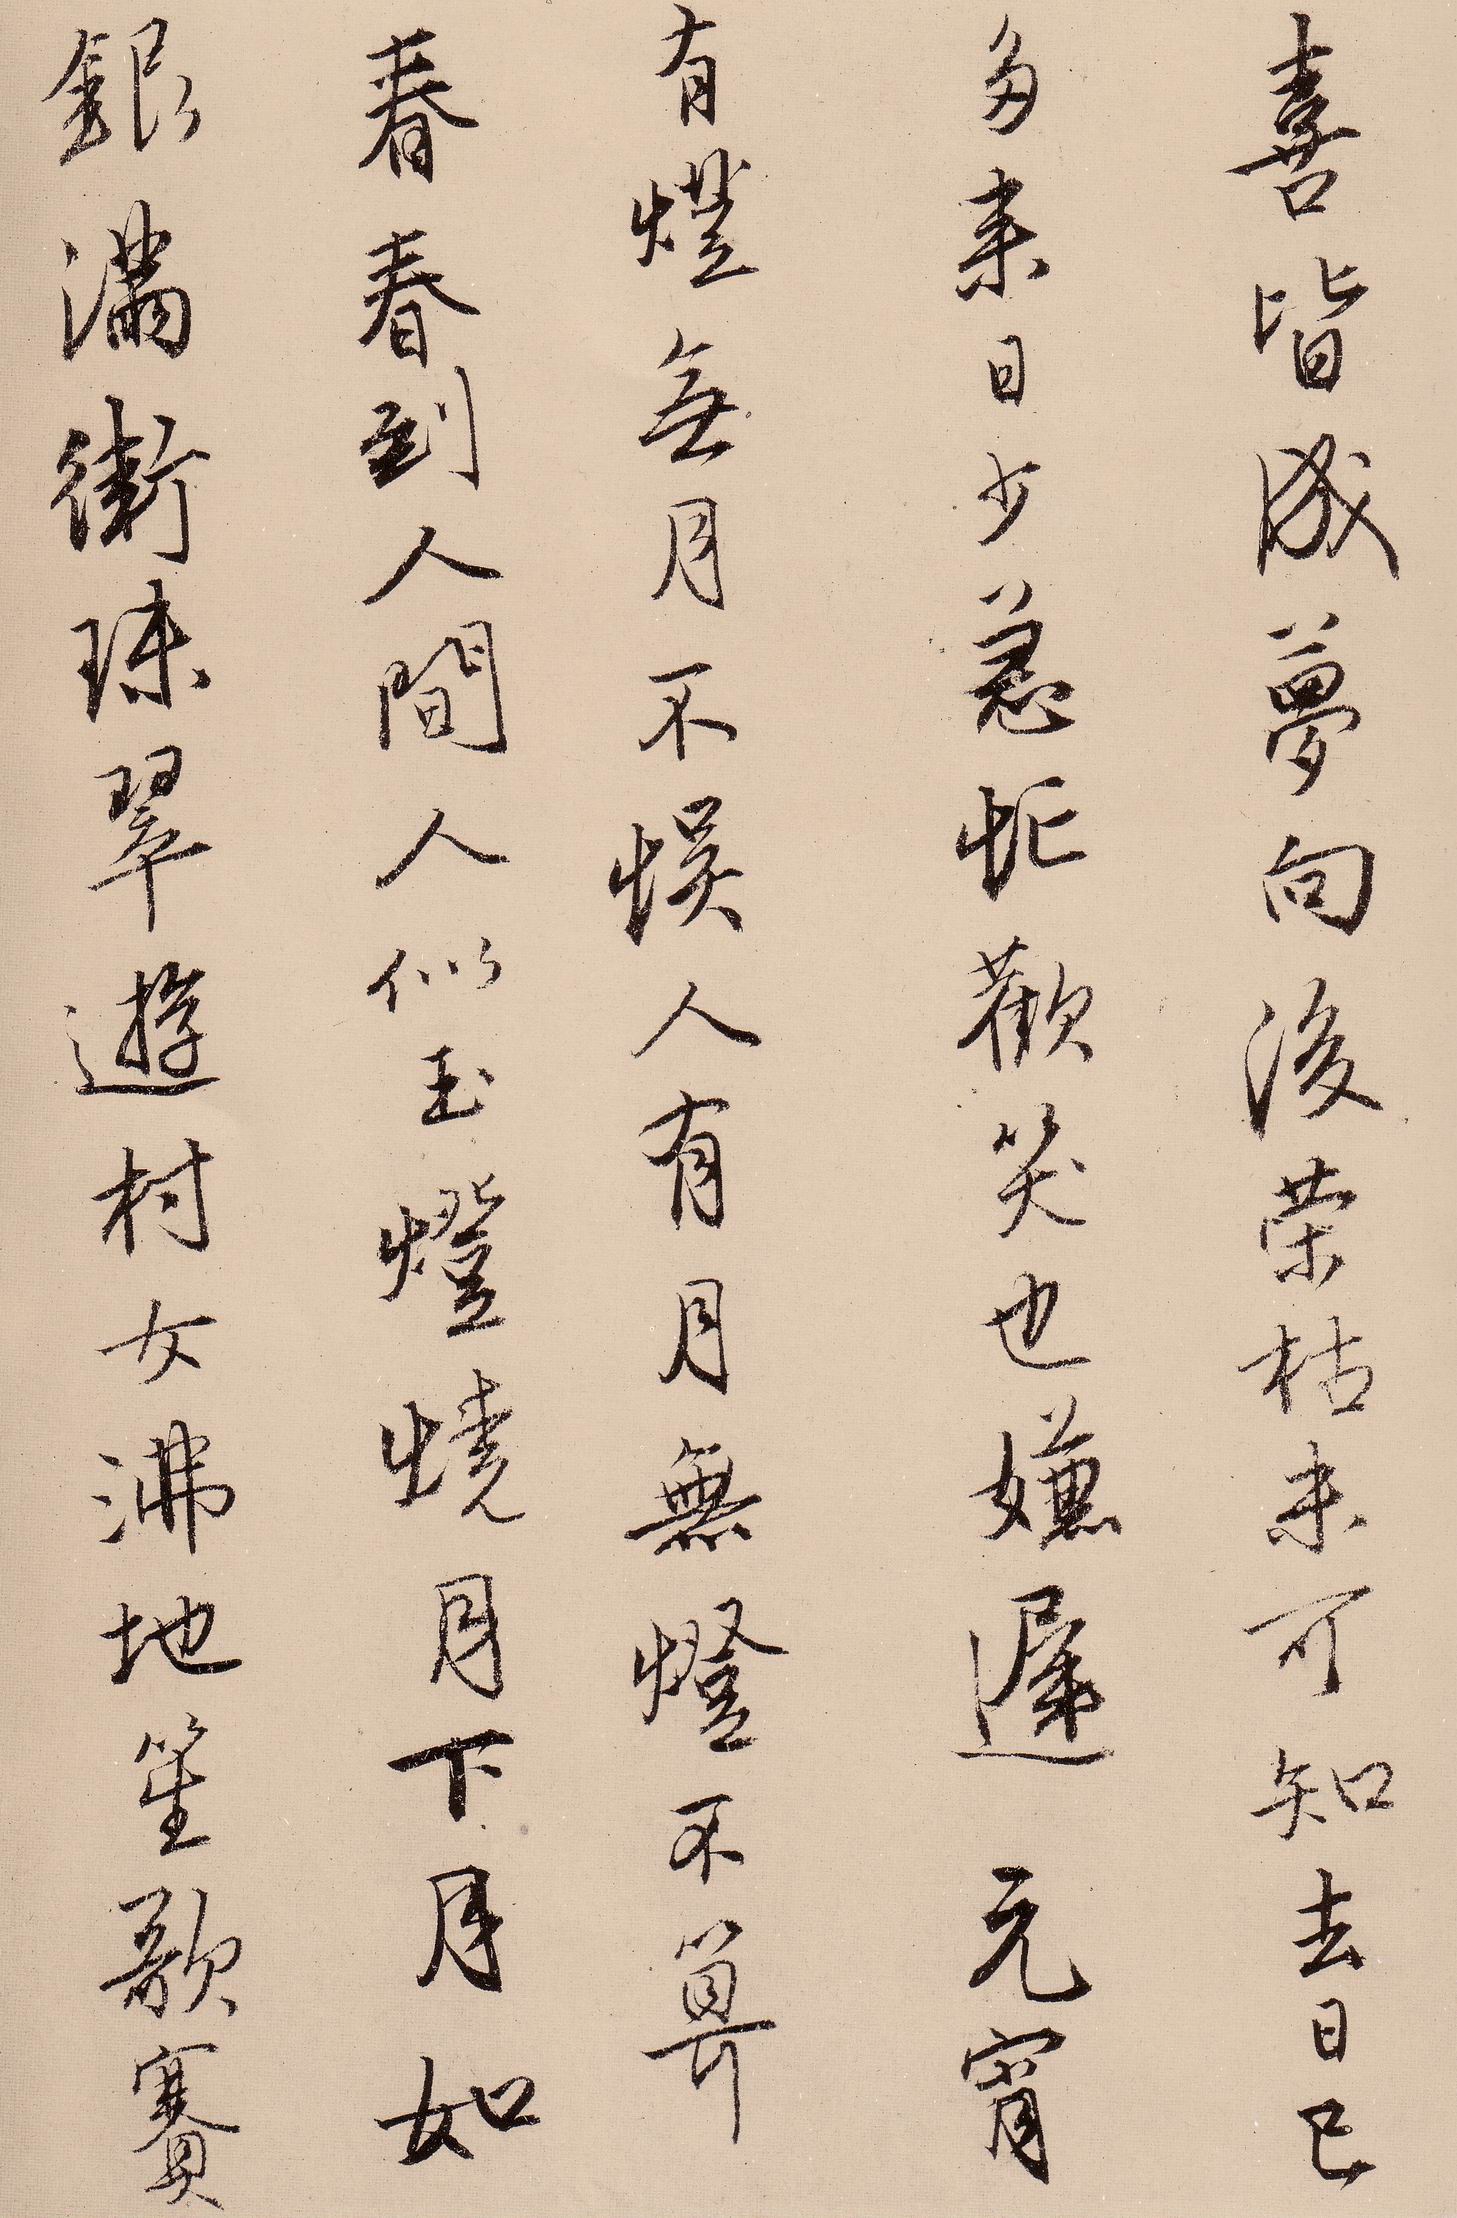 喜皆成夢向後荣枯未可知去日已
多来日少急忙歡笑也嫌遲 元宵
有燈無月不悮人有月無燈不算
春春到人間人似玉燈燒月下月如
銀滿街珠翠遊村女沸地笙歌賽